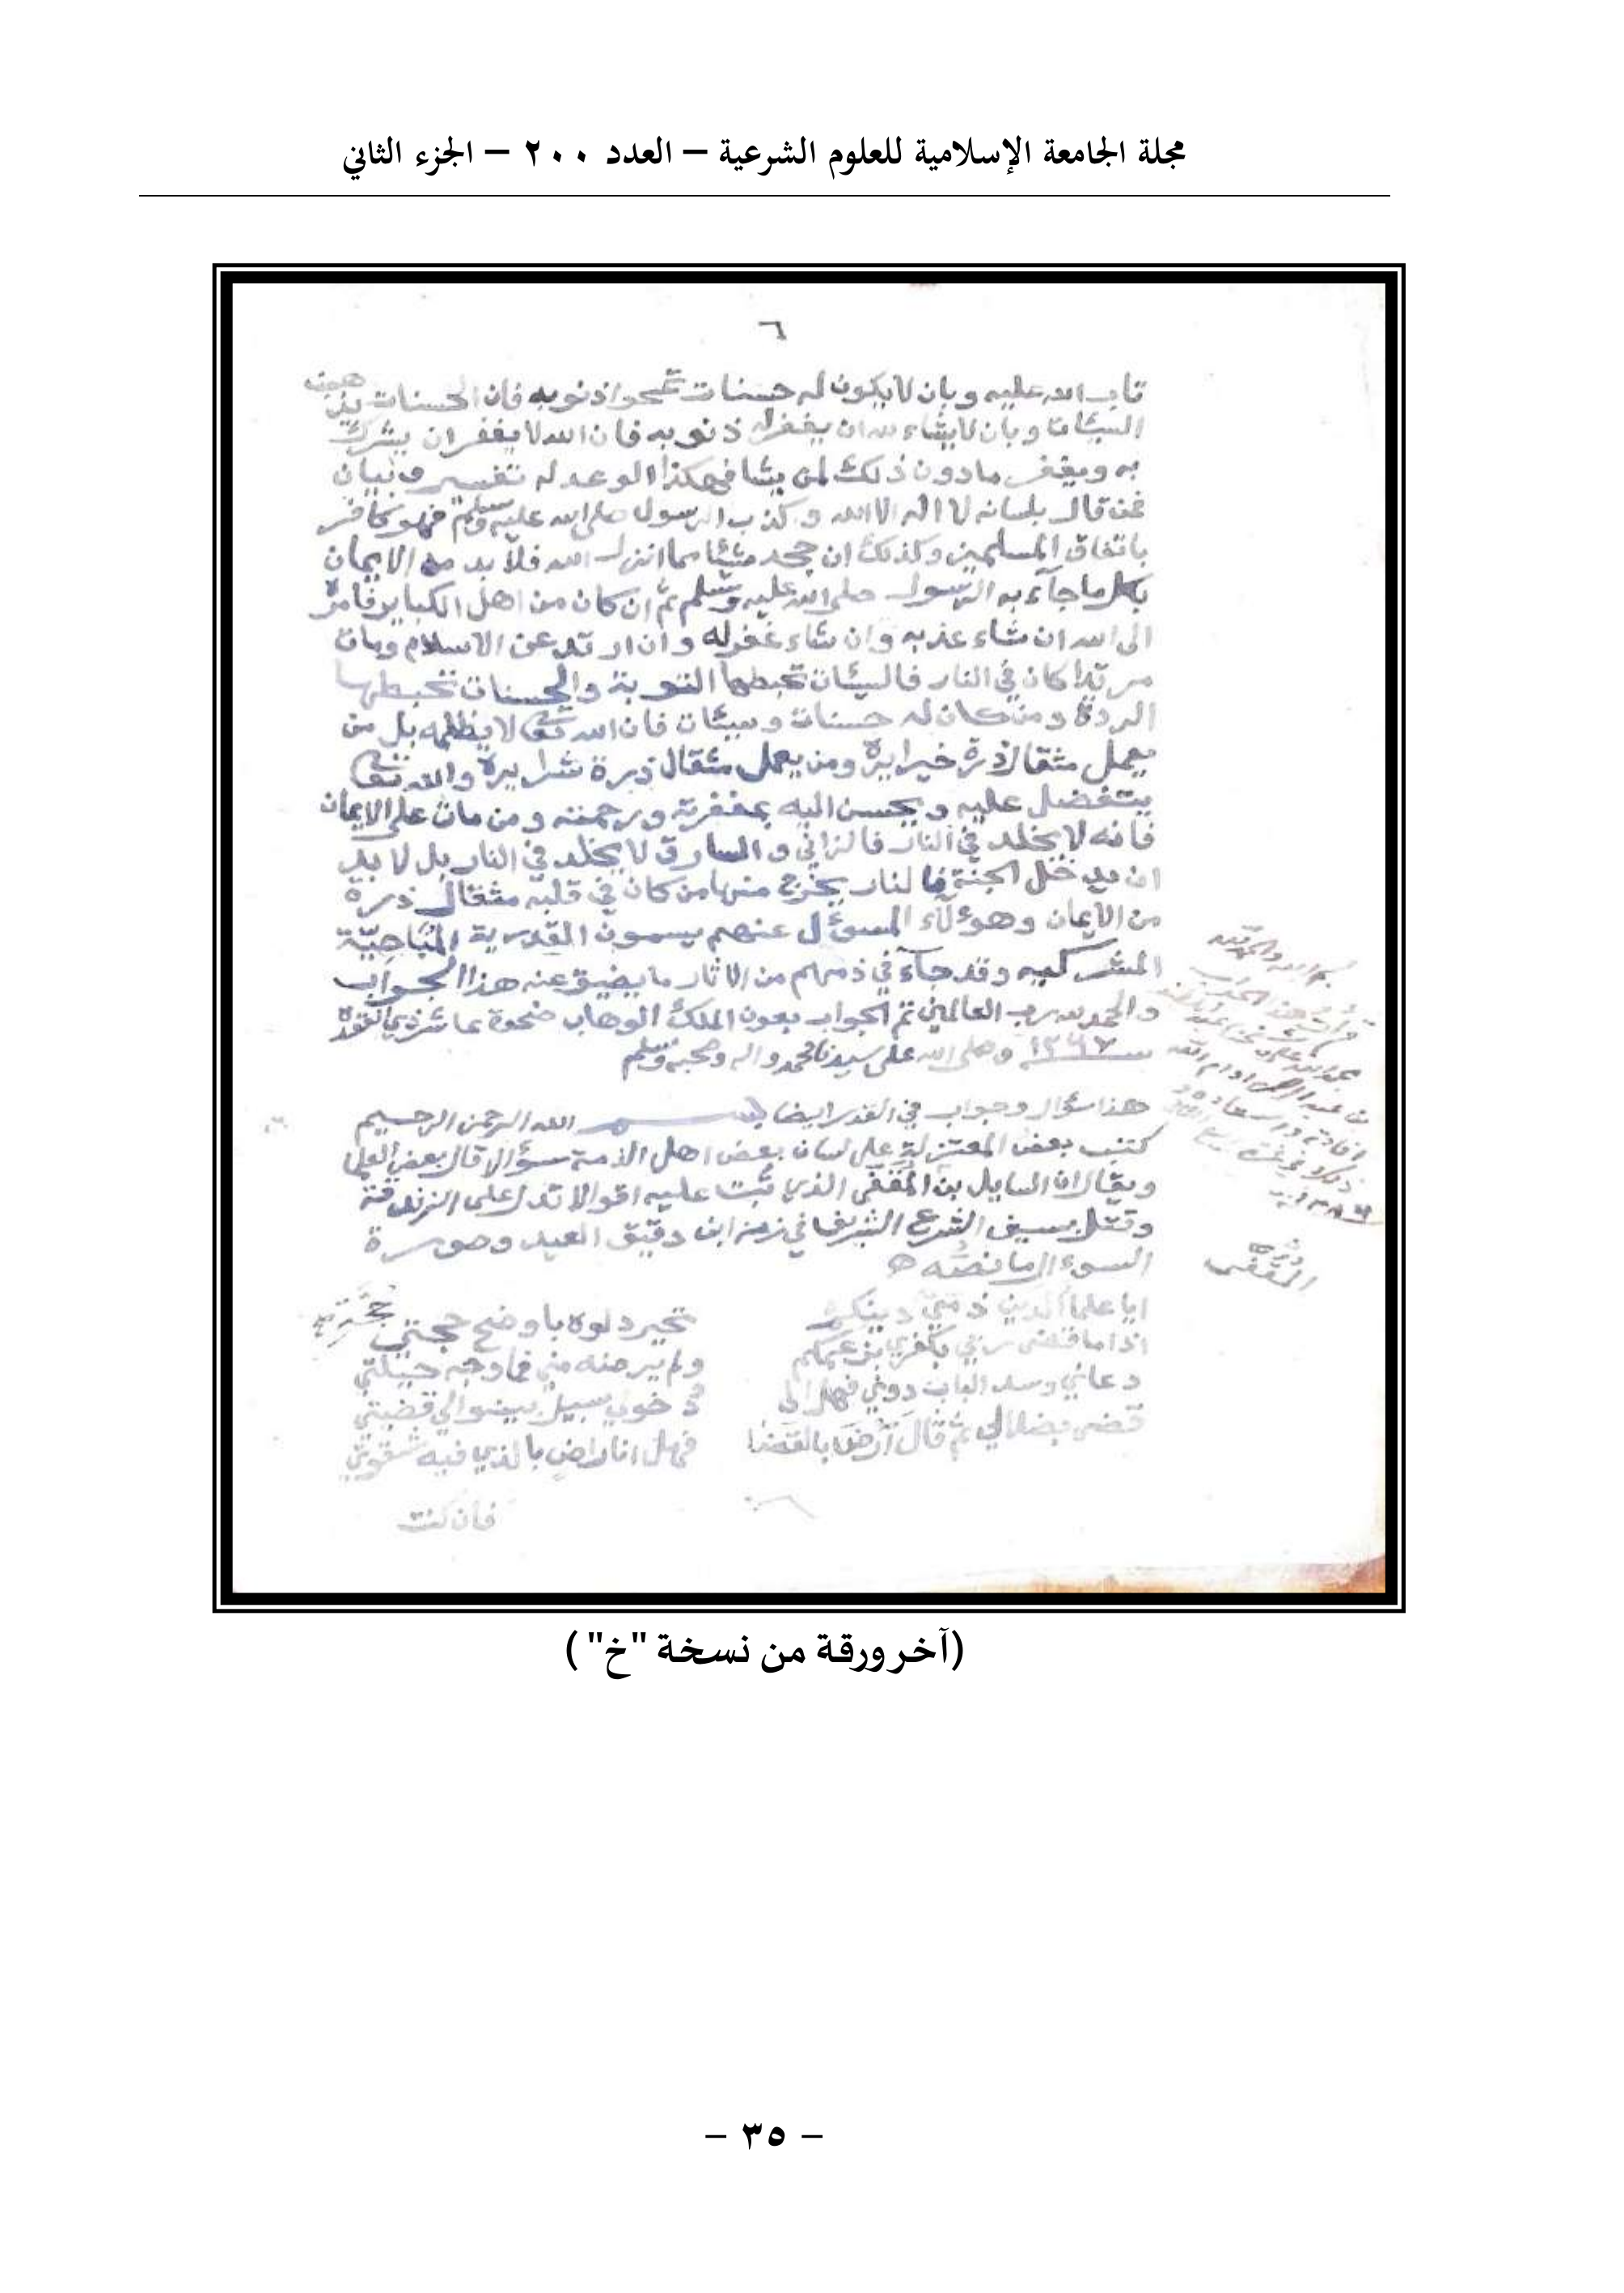 مجلة الجامعة الإسلامية للعلوم الشرعية – العدد ٢٠٠ – الجزء الثاني
٦
تاب الله عليه وبان لا يكون له حسنات تمحوا ذنوبه فان الحسنات يذهبن
السيئات وبان لا يشاء الله ان يغفر له ذنوبه فان الله لا يغفر ان يشرك
به ويغفر ما دون ذلك لمن يشا فهكذا الوعد له تفسير وبيان
فمن قال بلسانه لا اله الا الله وكذب الرسول صلى الله عليه وسلم فهو كافر
باتفاق المسلمين وكذلك ان جحد شيئا مما انزل الله فلا بد من الايمان
بكل ما جآء به الرسول صلى الله عليه وسلم ثم ان كان من اهل الكباير فامره
الى الله ان شاء عذبه وان شاء غفر له وان ارتد عن الاسلام ومات
مرتدا كان في النار فالسيئات تحبطها التوبة والحسنات تحبطها
الردة ومن كان له حسنات وسيئات فان الله تعالى لا يظلمه بل من
يعمل مثقال ذرة خيرا يره ومن يعمل مثقال ذرة شرا يره والله تعالى
يتفضل عليه ويحسن اليه بمغفرته ورحمته ومن مات على الايمان
فانه لا يخلد في النار فالزاني والسارق لا يخلد في النار بل لا بد
ان يدخل الجنة فا لنار يخرج منها من كان في قلبه مثقال ذرة
من الايمان وهوءلآء المسؤل عنهم يسمون القدرية المباحية
المشركيه وقد جآء في ذمهم من الاثار ما يضيق عنه هذا الجواب
والحمد لله رب العالمين تم الجواب بعون الملك الوهاب ضحوة عاشر ذي القعدة
وصلى الله على سيدنا محمد واله وصحبه وسلم
هذا سؤال وجواب في القدر ايضا بسم الله الرحمن الرحيم
كتب بعض المعتزلة على لسان بعض اهل الذمة سؤالا قال بعض العلما
ويقال ان السايل بن المقفى الذي ثبت عليه اقوالا تدل على الزندقة
وقتل بسيف الشرع الشريف في زمن ابن دقيق العيد وصورة
السوءال ما نصه
ايا علمآ الدين ذمي دينكم تحير دلوه باوضح حجتي
اذا ما قضى ربي بكفري بزعمكم ولم يرضه مني فما وجه حيلتي
دعاني وسد الباب دوني فهل الى دخولي سبيل بينوا لي قضيتي
قضى بضلالي ثم قال ارض بالقضا فهل انا راض بالذي فيه شقوتي
فان كنت
المقفى
(آخر ورقة من نسخة "خ")
– ٣٥ –